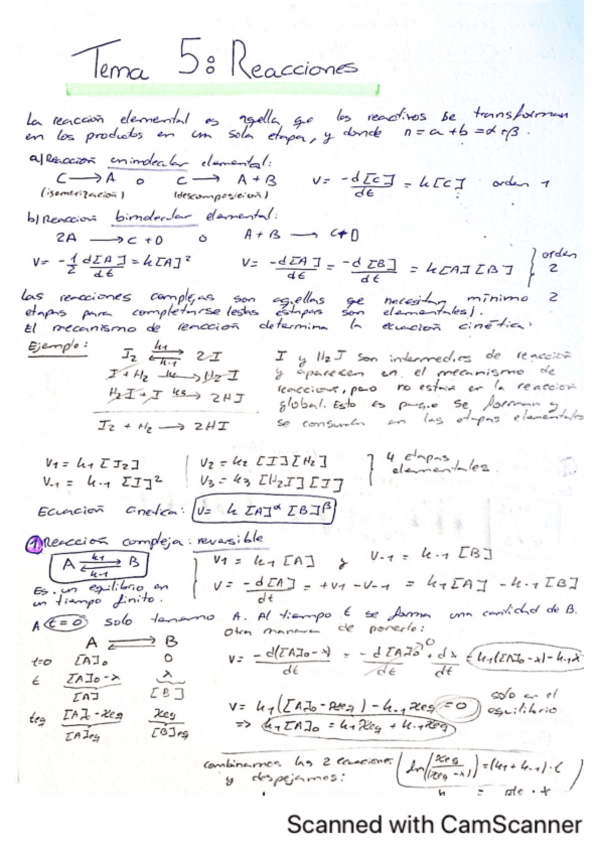 Tema 5: Reacciones
La reacción elemental es aqella qe los reactivos se transforman
en los productos en un sola etapa, y donde n = a + b = α + β.
a) Reacción unimolecular elemental:
C → A o C → A + B V = -d[C]/dt = k[C] orden 1
(isomerización) (descomposición)
b) Reacción bimolecular elemental:
2A → C + D o A + B → C + D
V = -1/2 d[A]/dt = k[A]² V = -d[A]/dt = -d[B]/dt = k[A][B] } orden 2
Las reacciones complejas son aqellas qe necesitan mínimo 2
etapas para completarse (estas etapas son elementales).
El mecanismo de reacción determina la ecuación cinética.
Ejemplo: I2 ⇌ 2I k1 k-1 I y H2I son intermedies de reacción
I + H2 k2 → H2I y aparecen en el mecanismo de
H2I + I k3 → 2HI reaccione, pero no estan en la reacción
global. Esto es porque se forman y
I2 + H2 → 2HI se consumen en las etapas elementales
V1 = k1 [I2] V2 = k2 [I][H2] } 4 etapas
V-1 = k-1 [I]² V3 = k3 [H2I][I] elementales.
Ecuación cinetica: V = k [A]^α [B]^β
1. Reacción compleja: reversible
A ⇌ B k1 k-1 V1 = k1 [A] y V-1 = k-1 [B]
Es un equilibrio en V = -d[A]/dt = +V1 - V-1 = k1[A] - k-1[B]
un tiempo finito.
A t=0 solo tenemo A. Al tiempo t se forma una cantidad de B.
Otra manera de ponerlo:
A ⇌ B
t=0 [A]0 0 V = -d([A]0-x)/dt = -d[A]0/dt 0 + dx/dt = k1([A]0-x) - k-1x
t [A]0-x x
[A] [B]
V = k1([A]0-xeq) - k-1xeq = 0 solo en el equilibrio
teq [A]-xeq xeq ⇒ k1[A]0 = k1xeq + k-1xeq
[A]eq [B]eq
combinamos las 2 ecuaciones ln(xeq/(xeq-x)) = (k1+k-1)·t
y despejamos:
Scanned with CamScanner